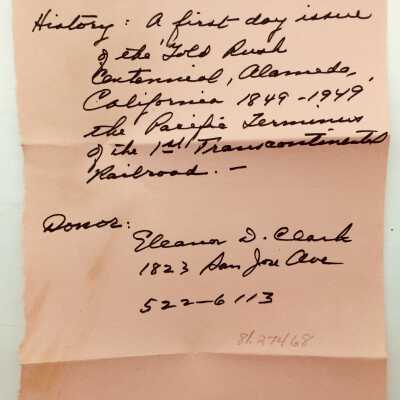 History: A first day issue
of the Gold Rush
Centennial, Alameda,
California 1849-1949,
the Pacific Terminus
of the 1st Transcontinental
Railroad. -
Donor:
Eleanor D. Clark
1823 San Jose Ave
522-6113
81.27468